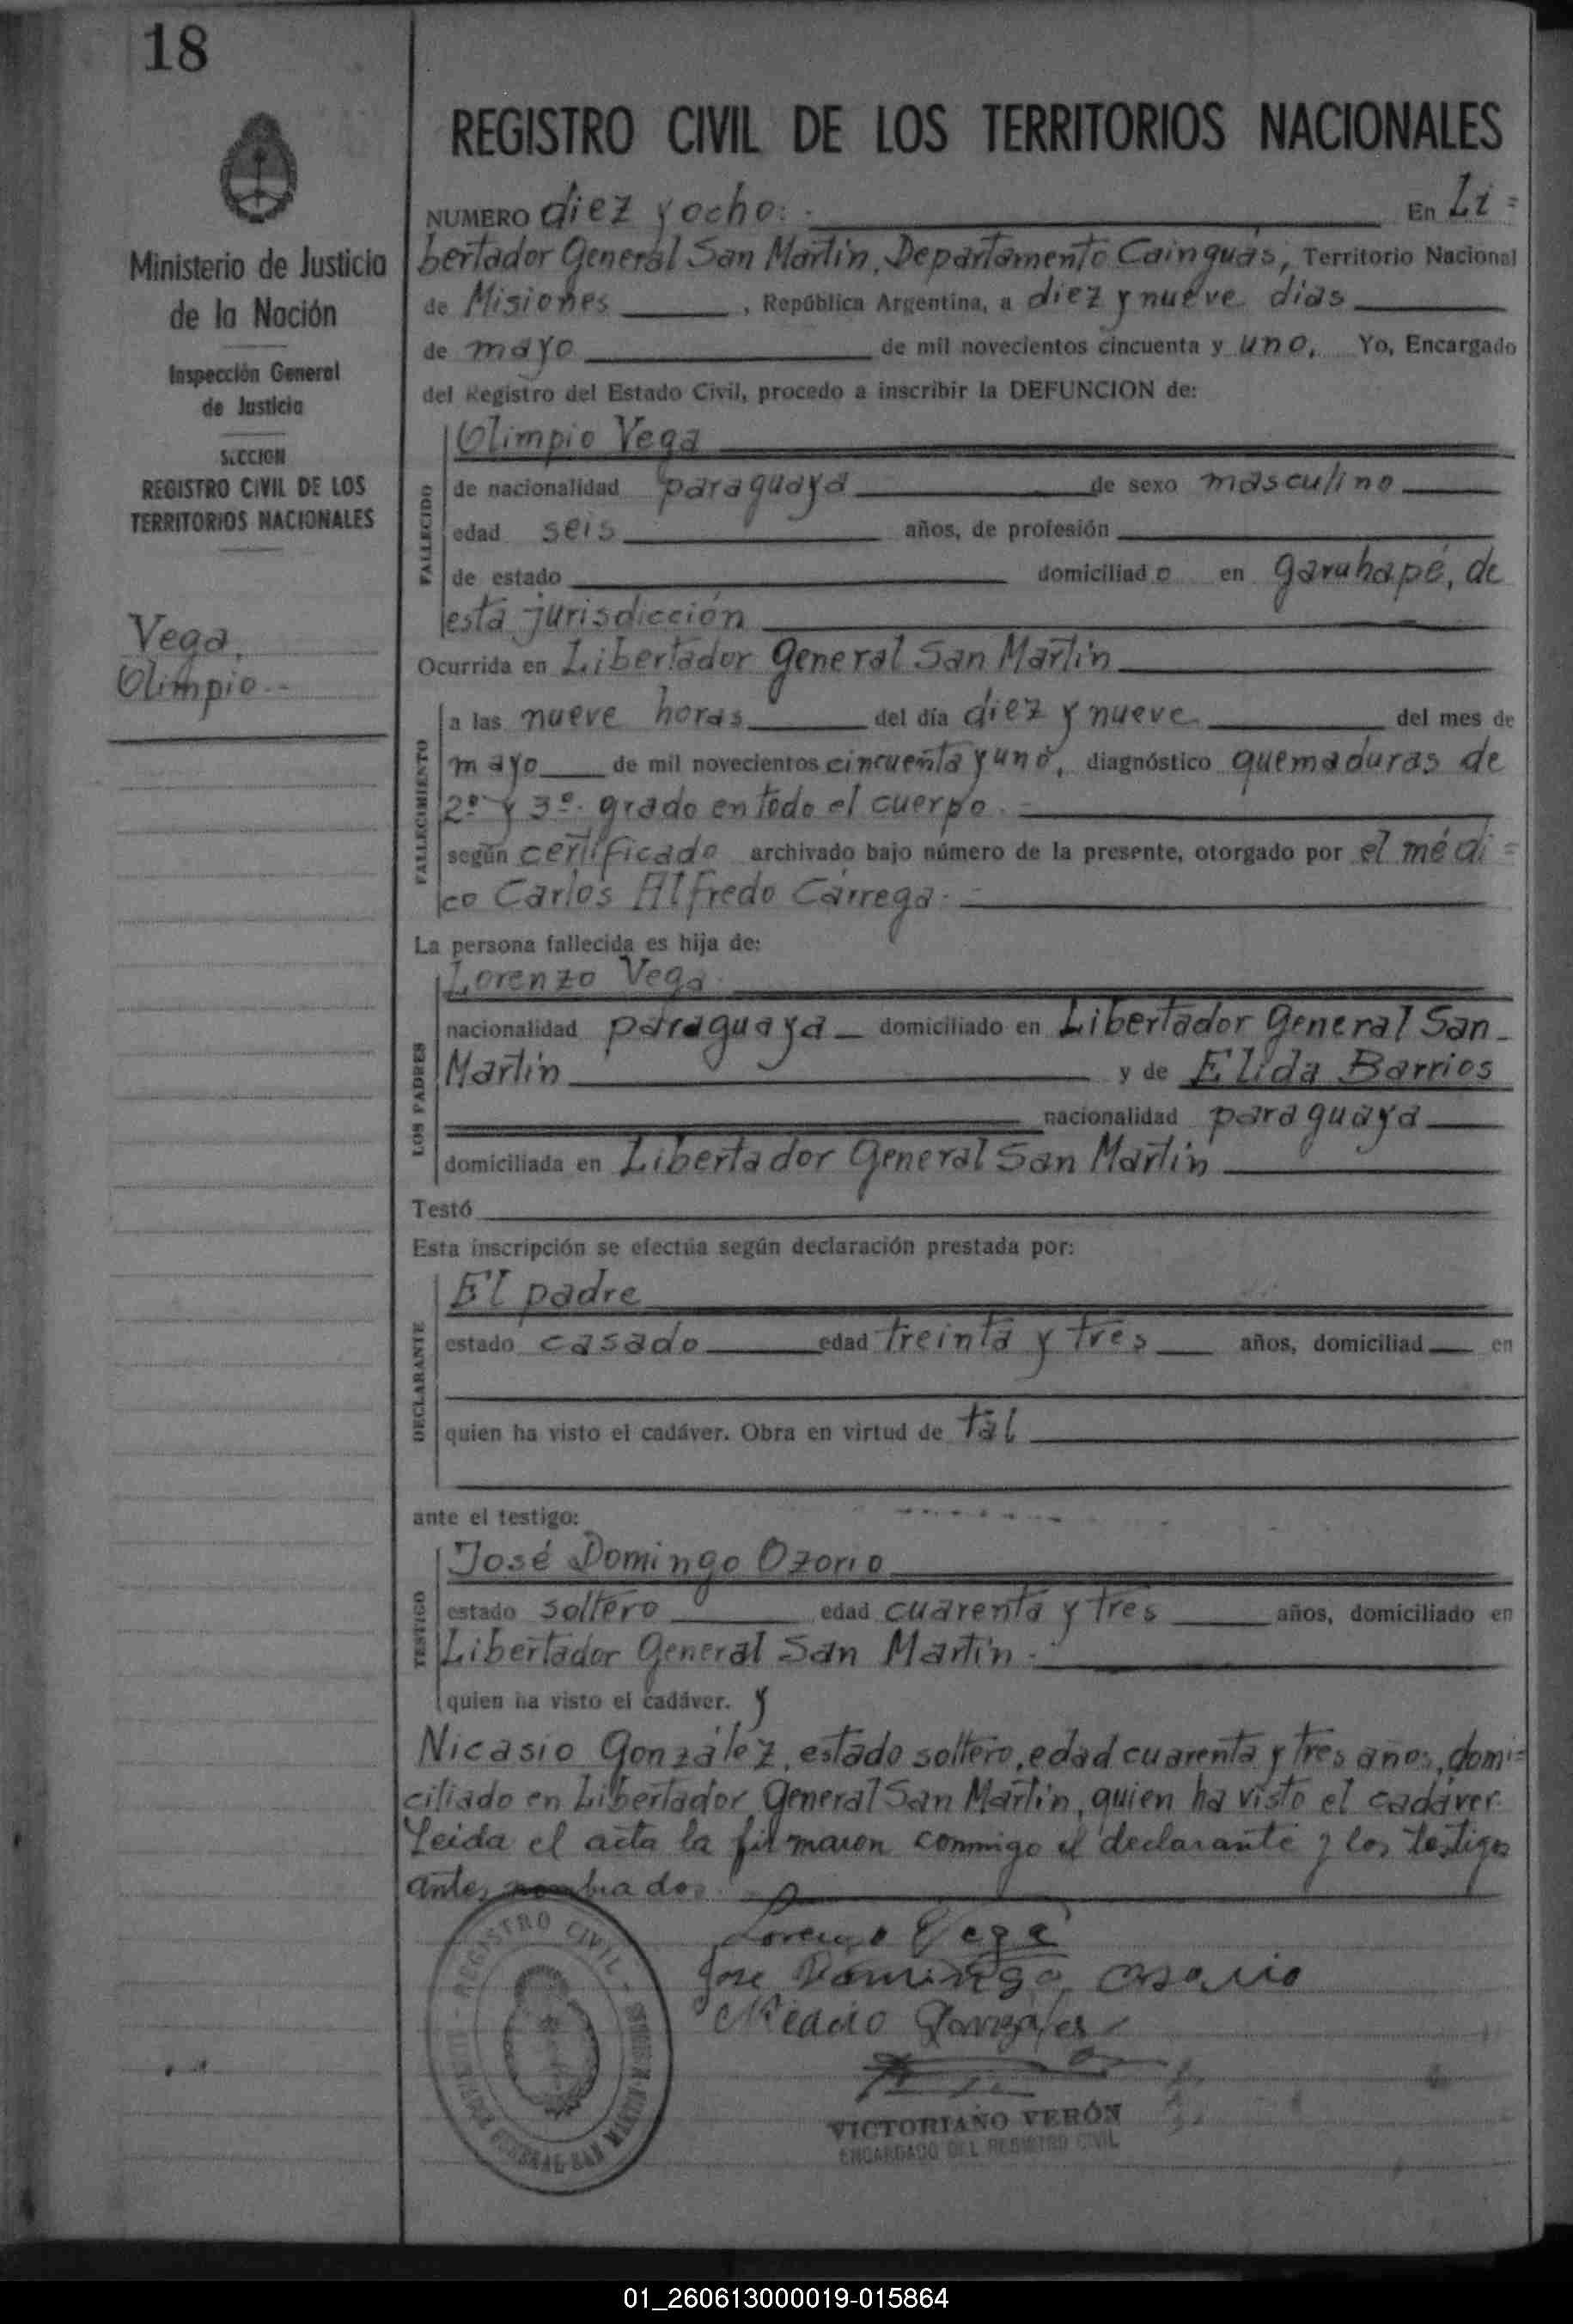 18
Ministerio de Justicia
de la Nación
Inspección General
de Justicia
SECCION
REGISTRO CIVIL DE LOS
TERRITORIOS NACIONALES
Vega,
Olimpio.-
REGISTRO CIVIL DE LOS TERRITORIOS NACIONALES
NUMERO diez y ocho: En Li=
bertador General San Martín, Departamento Cainguás, Territorio Nacional
de Misiones, República Argentina, a diez y nueve dias
de mayo de mil novecientos cincuenta y uno, Yo, Encargado
del Registro del Estado Civil, procedo a inscribir la DEFUNCION de:
FALLECIDO
Olimpio Vega
de nacionalidad paraguaya de sexo masculino
edad seis años, de profesión
de estado domiciliado en garuhapé, de
esta jurisdicción
Ocurrida en Libertador General San Martín
FALLECIMIENTO
a las nueve horas del día diez y nueve del mes de
mayo de mil novecientos cincuenta y uno, diagnóstico quemaduras de
2º y 3º. grado en todo el cuerpo.
según certificado archivado bajo número de la presente, otorgado por el médi=
co Carlos Alfredo Cárrega.
La persona fallecida es hija de:
LOS PADRES
Lorenzo Vega
nacionalidad paraguaya domiciliado en Libertador General San
Martín y de Elida Barrios
nacionalidad paraguaya
domiciliada en Libertador General San Martín
Testó
Esta inscripción se efectúa según declaración prestada por:
DECLARANTE
El padre
estado casado edad treinta y tres años, domiciliad en
quien ha visto el cadáver. Obra en virtud de tal
ante el testigo:
TESTIGO
José Domingo Ozorio
estado soltero edad cuarenta y tres años, domiciliado en
Libertador General San Martín.
quien ha visto el cadáver. y
Nicasio González, estado soltero, edad cuarenta y tres años, domi=
ciliado en Libertador General San Martín, quien ha visto el cadáver.
Leida el acta la firmaron conmigo el declarante y los testigos
antes nombrados.
Lorenzo Vega
Jose Domingo Osorio
Nicacio Gonzales
REGISTRO CIVIL
GENERAL SAN MARTIN
VICTORIANO VERÓN
ENCARGADO DEL REGISTRO CIVIL
01_260613000019-015864